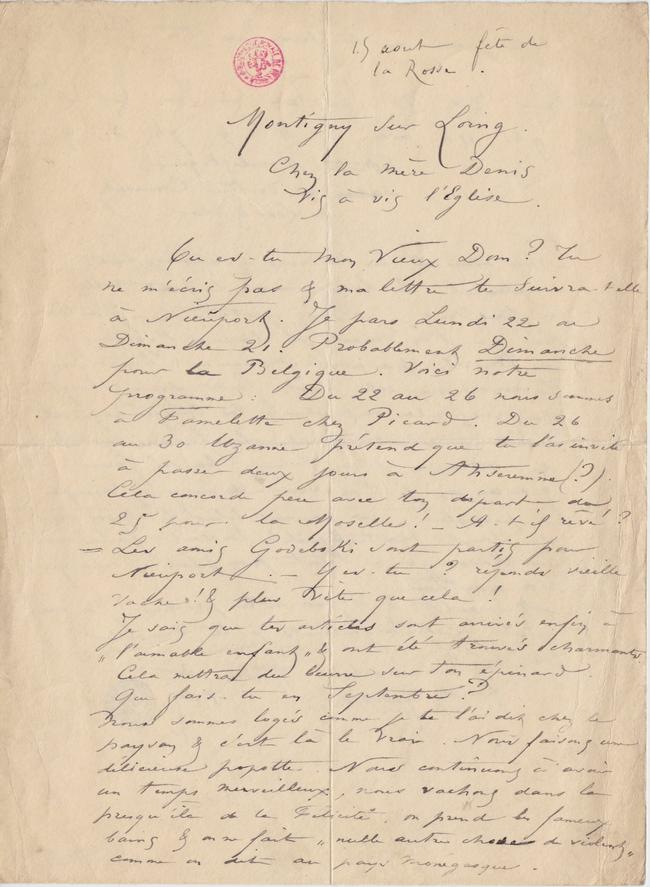 15 aout fête de
la Rosse.
Montigny sur Loing.
Chez la mère Denis
Vis à vis l'Eglise.
Ou es-tu Mon Vieux Dom? Tu
ne m'écris pas & ma lettre te suivra-t-elle
à Nieuport. Je pars Lundi 22 ou
Dimanche 21. Probablement Dimanche
pour la Belgique. Voici notre
programme: Du 22 au 26 nous sommes
à Famelette chez Picard. Du 26
au 30 Uzanne prétend que tu l'as invité
à passer deux jours à Anseremme (?).
Cela concorde peu avec ton départ du
25 pour la Moselle! - A-t-il rêvé?
= Les amis Godebski sont partis pour
Nieuport. - Y es-tu? réponds vieille
vache! & plus vite que cela!
Je sais que tes articles sont arrivés enfin à
"l'aimable enfant" & ont été trouvés charmants
Cela mettra du beurre sur ton épinard.
Que fais-tu en Septembre?
Nous sommes logés comme je te l'ai dit chez le
paysan & c'est là le vrai. Nous faisons une
délicieuse popotte. Nous continuons à avoir
un temps merveilleux, nous vachons dans la
presqu'ile de la Félicité, on prend les fameux
bains & on ne fait "nulle autre chose de violent"
comme on dit au pays monegasque.